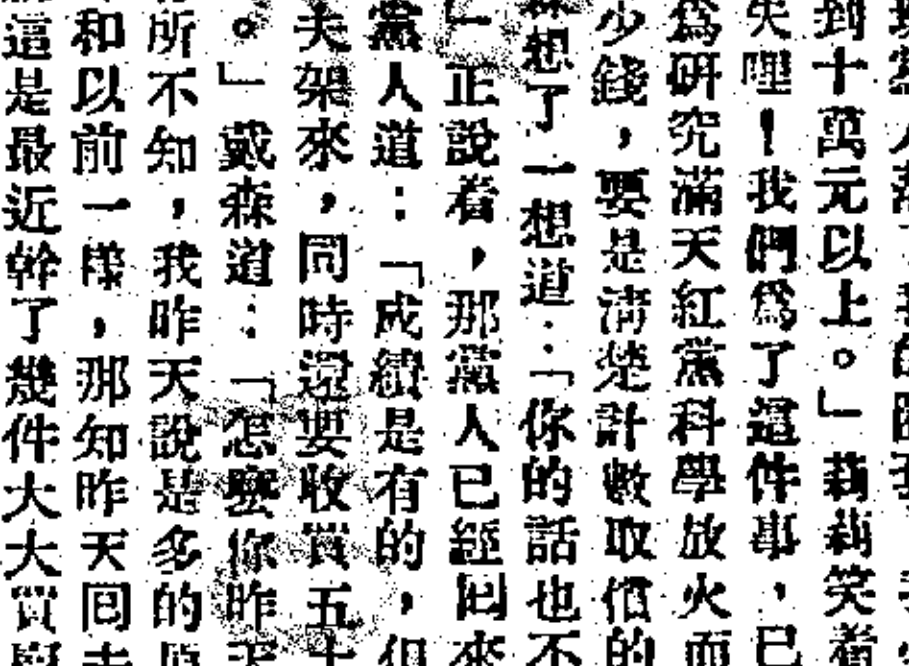 到十萬元以上。」莉莉笑着
失哩！我們爲了這件事，已
爲研究滿天紅黨科學放火而
少錢，要是淸楚計數取償的
想了一想道：「你的話也不
」正說着，那黨人已經回來
黨人道：「成績是有的，但
夫架來，同時還要收買五十
。」戴森道：「怎麼你昨天
所不知，我昨天說是多的
和以前一樣，那知昨天回去
這是最近幹了幾件大大買